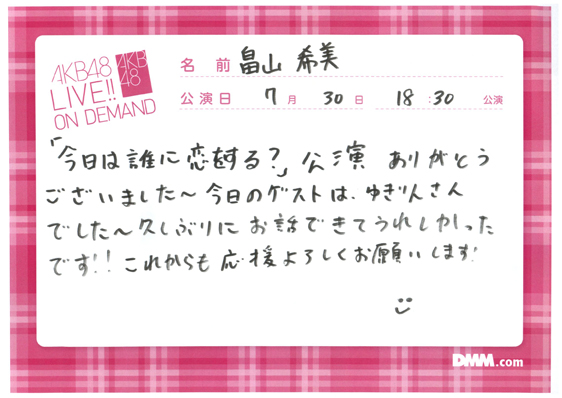 AKB48
LIVE!!
ON DEMAND
AKB
48
名 前 畠山 希美
公演日 7月 30日 18:30 公演
「今日は誰に恋をする?」公演 ありがとう
ございました〜今日のゲストは、ゆきりんさん
でした〜久しぶりにお話できてうれしかった
です!!これからも応援よろしくお願いします!
DMM.com